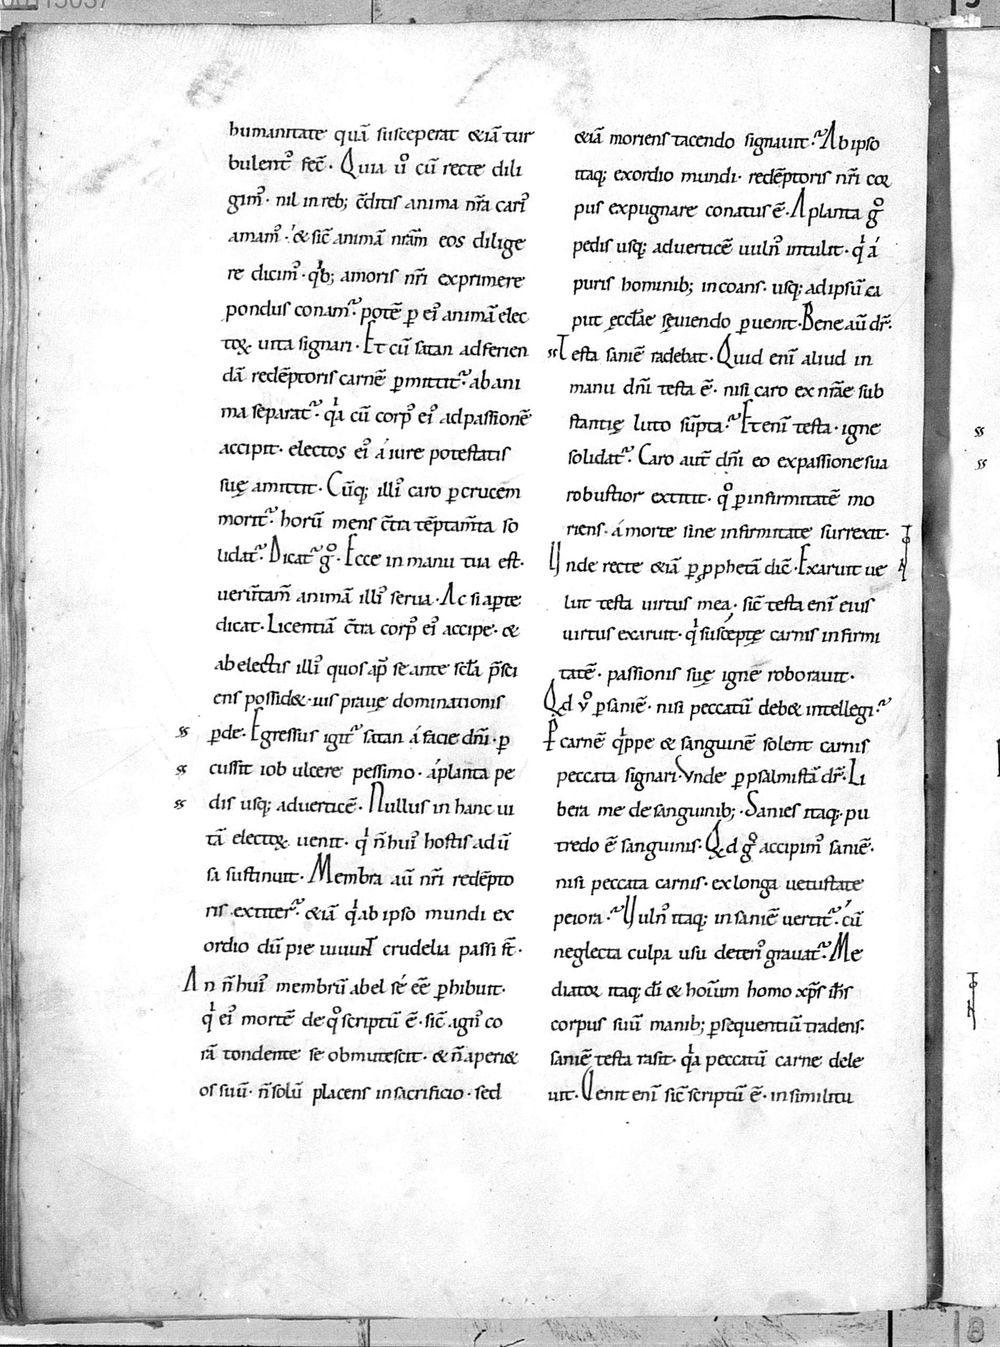 humanitate quā susceperat &iā tur
bulent᷒ fec̄. Quia ủ cū recte dili
gim᷒. nil in reb; c̄ditis anima nr̄a cari᷒
amam᷒. & sic̄ animā nrām eos dilige
re dicim᷒. qͥb; amoris nr̄i exprimere
pondus conam᷒. potē ꝑ ei᷒ animā elec
toꝝ uita signari. Et cū satan ad ferien
dā redēptoris carnē ꝑmittit᷒ ab ani
ma separat᷒. qͥa cū corp᷒ ei᷒ ad passionē
accipit. electos ei᷒ á iure potestatis
suę amittit. Cūq; illi᷒ caro ꝑ crucem
morit᷒. horū mens c̄tra tēptam̄ta so
lidat᷒. Dicat᷒ gͦ. Ecce in manu tua est.
uerūtam̄ animā illi᷒ serua. Ac si aꝑte
dicat. Licentiā c̄tra corp᷒ ei᷒ accipe. &
ab electis illi᷒ quos ap᷒ se ante scl̄a p̄sci
ens possid&. ius prauę dominationis
ꝑde. Egressus igit᷒ satan á facie dn̄i. ꝑ
cussit iob ulcere pessimo. á planta pe
dis usq; ad uerticē. Nullus in hanc ui
tā electoꝝ uenit. qͥ n̄ hui᷒ hostis adū
sa sustinuit. Membra aū nr̄i redēpto
ris extiter᷒. &iā qͥ ab ipso mundi ex
ordio dū pie uiuunt crudelia passi st̄.
An n̄ hui᷒ membrū abel sé eē ꝑhibuit.
qͥ ei᷒ mortē de qͦ scriptū ē. sic̄ agn᷒ co
rā tondente se obmutescit. & n̄ aperi&
os suū. n̄ solū placens in sacrificio. sed
&iā moriens tacendo signauit. Ab ipso
itaq; exordio mundi. redēptoris nr̄i cor
pus expugnare conatus ē. A planta gͦ
pedis usq; ad uerticē uuln᷒ intulit. qͥ á
puris hominib; incoans. usq; ad ipsū ca
put ęccl̄ae sęuiendo ꝑuenit. Bene aū dr̄.
Testa saniē radebat. Quid eni᷒ aliud in
manu dn̄i testa ē. nisi caro ex nrāe sub
stantię luto sūpta. Et eni᷒ testa. igne
solidat᷒. Caro aut̄ dn̄i eo ex passione sua
robustior extitit. qͦ ꝑ infirmitatē mo
riens. á morte sine infirmitate surrexit.
Unde recte &iā ꝑ ꝓphetā dic̄. Exaruit ue
lut testa uirtus mea. sic̄ testa eni᷒ eius
uirtus exaruit. qͥ susceptę carnis infirmi
tatē. passionis suę igne roborauit.
Qd vͦ ꝑ saniē. nisi peccatū deb& intellegi᷒
P carnē qͥppe & sanguinē solent carnis
peccata signari. Vnde ꝑ psalmistā dr̄. Li
bera me de sanguinib;. Sanies itaq; pu
tredo ē sanguinis. Qd gͦ accipim᷒ saniē.
nisi peccata carnis. ex longa uetustate
peiora. Uuln᷒ itaq; in saniē uertit᷒. cū
neglecta culpa usu deteri᷒ grauat᷒. Me
diator itaq; dī & hoīum homo xp̄s ih̄s
corpus suū manib; ꝑsequentiū tradens.
saniē testa rasit. qͥa peccatū carne dele
uit. Uenit eni᷒ sic̄ scriptū ē. in similitu